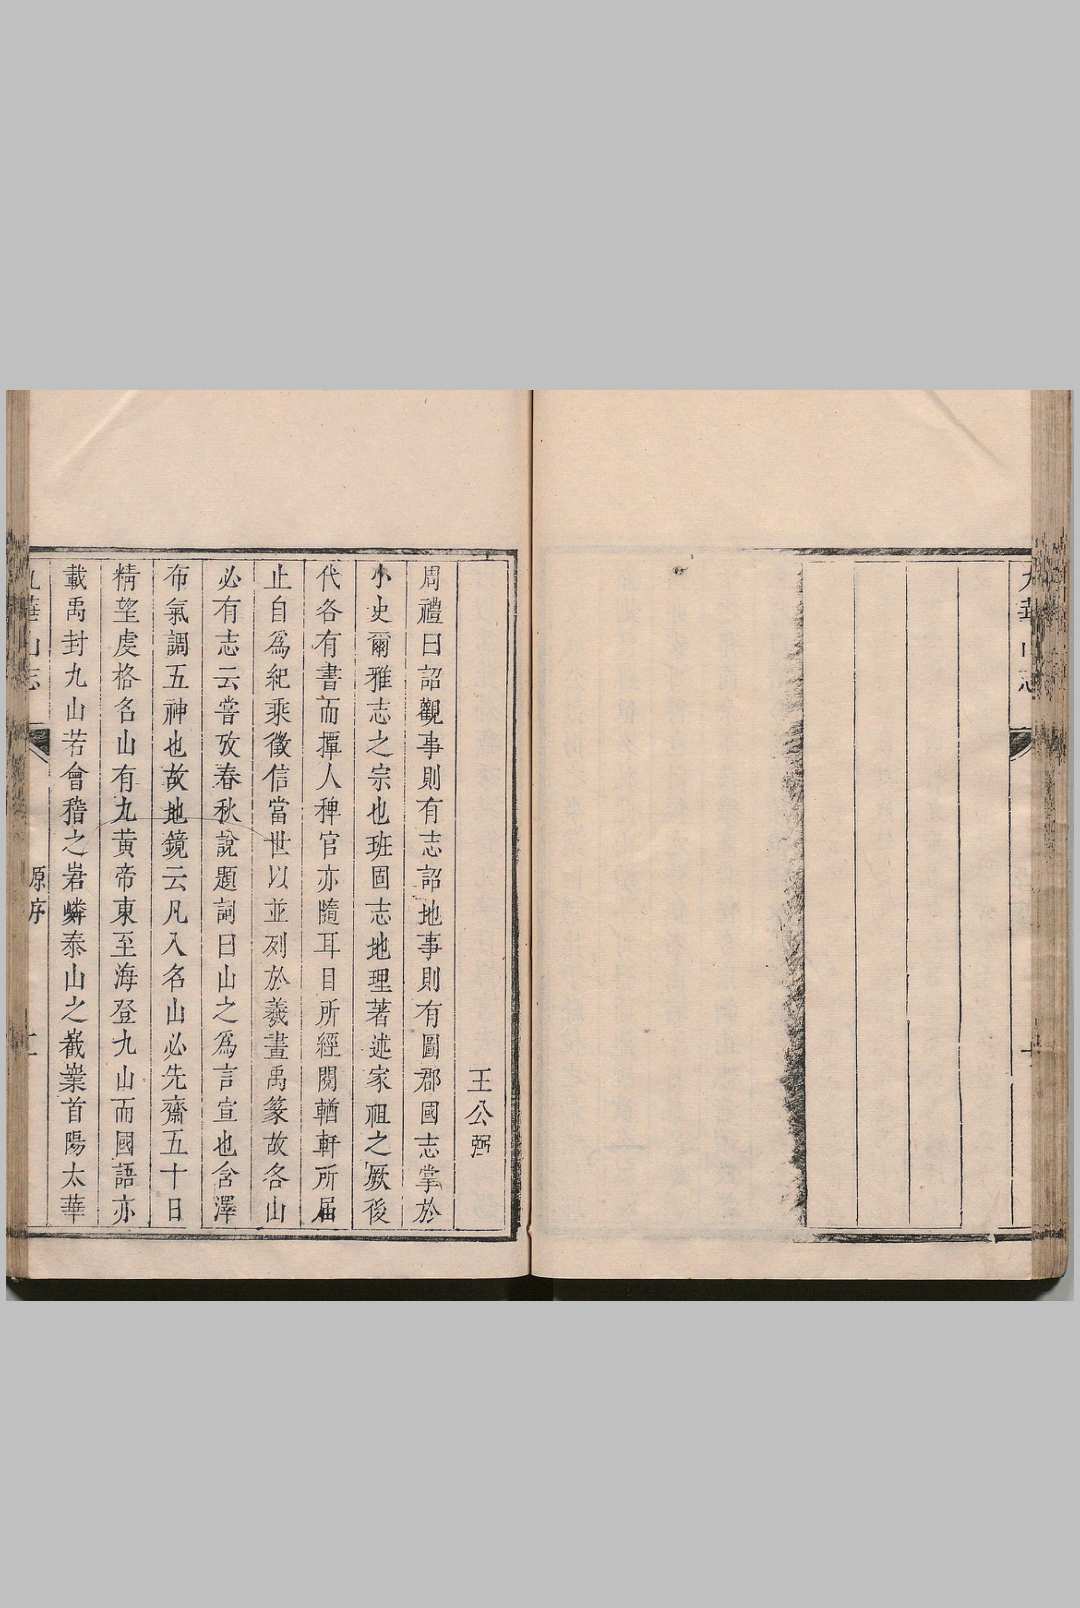 九華山志
王公弼
周禮曰詔觀事則有志詔地事則有圖郡國志掌於
小史爾雅志之宗也班固志地理著述家祖之厥後
代各有書而撢人稗官亦隨耳目所經閱輶軒所届
止自爲紀乘徵信當世以並列於羲畫禹篆故各山
必有志云嘗攷春秋說題詞曰山之爲言宣也含澤
布氣調五神也故地鏡云凡入名山必先齋五十日
精望虔格名山有九黄帝東至海登九山而國語亦
載禹封九山若會稽之岩嶙泰山之嶻嶪首陽太華
九華山志
原序